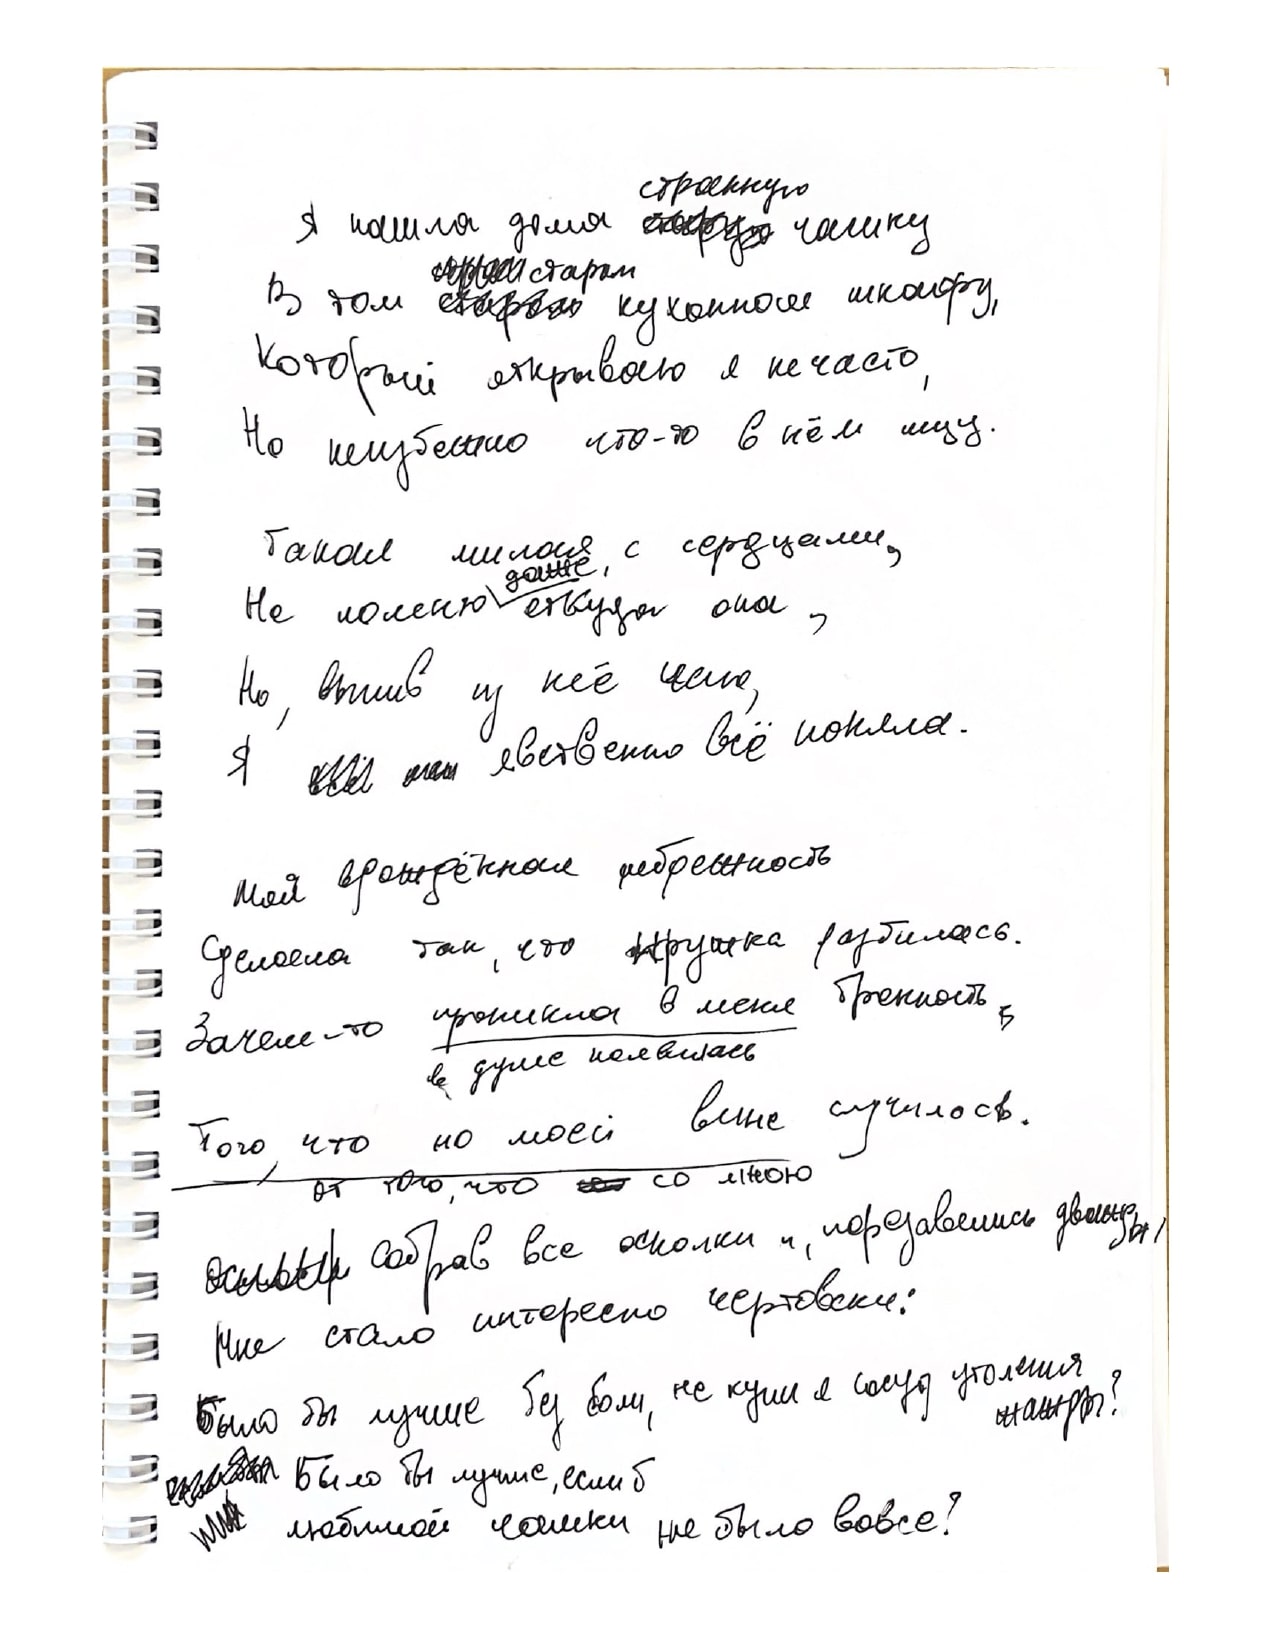 странную
Я нашла дома чашку
старом
В том кухонном шкафу,
Который открываю я нечасто,
Но неизбежно что-то в нём ищу.
Такая милая, с сердцами,
даже
Не помню откуда она,
Но, выпив из неё чаю,
Я явственно всё поняла.
Моя врождённая небрежность
Сделала так, что кружка разбилась.
Зачем-то проникла в меня бренность,
в душе появилась
Того, что по моей вине случилось.
от того, что со мною
Собрав все осколки и, порезавшись дважды,
Мне стало интересно чертовски:
Было бы лучше без боли, не купи я сосуд утоления
жажды?
Было бы лучше, если б
любимой чашки не было вовсе?